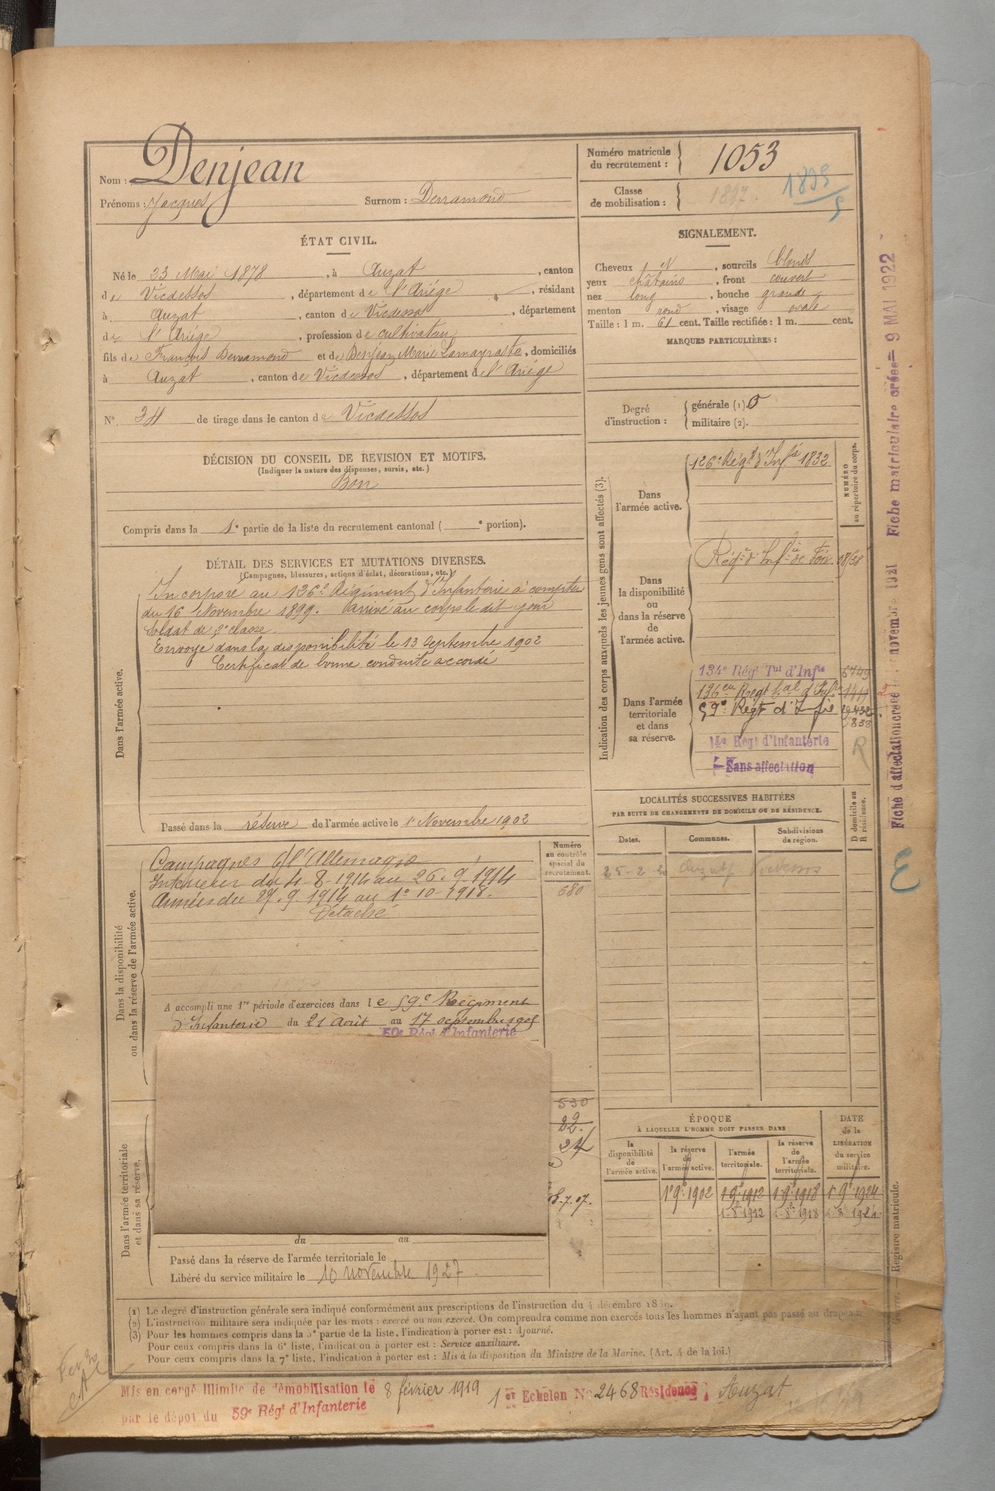 Nom : Denjean
Prénoms : Jacques Surnom : Derramond
Numéro matricule du recrutement : 1053
Classe de mobilisation : 1897
ÉTAT CIVIL.
Né le 23 Mai 1878, à Auzat, canton
de Vicdessos, département de l'Ariége, résidant
à Auzat, canton de Vicdessos, département
de l'Ariége, profession de cultivateur
fils de François Derramond et de Denjean Marie Lamayraste, domiciliés
à Auzat, canton de Vicdessos, département de l'Ariége
N° 34 de tirage dans le canton de Vicdessos
SIGNALEMENT.
Cheveux , sourcils blonds
yeux châtains, front couvert
nez long, bouche grande
menton rond, visage ovale
Taille : 1 m. 61 cent. Taille rectifiée : 1 m. cent.
MARQUES PARTICULIÈRES :
Degré d'instruction : générale (1). 0
militaire (2).
DÉCISION DU CONSEIL DE REVISION ET MOTIFS.
(Indiquer la nature des dispenses, sursis, etc.)
Bon
Compris dans la 1e partie de la liste du recrutement cantonal ( e portion).
DÉTAIL DES SERVICES ET MUTATIONS DIVERSES.
(Campagnes, blessures, actions d'éclat, décorations, etc.)
Dans l'armée active.
Incorporé au 126e Régiment d'Infanterie à compter
du 16 Novembre 1899. Arrivé au corps le dit jour
Soldat de 2e classe.
Envoyé dans la disponibilité le 13 Septembre 1902
Certificat de bonne conduite accordé
Passé dans la réserve de l'armée active le 1r Novembre 1902
Indication des corps auxquels les jeunes gens sont affectés (3).
NUMÉRO au répertoire du corps.
Dans l'armée active.
126e Régt d'Infie 1832
Dans la disponibilité ou dans la réserve de l'armée active.
Régt d'Infie de Foix
Dans l'armée territoriale et dans sa réserve.
134e Régt Tal d'Infie
136eme Regt tal d'Infie
59e Régt d'Infie
14e Régt d'Infanterie
Sans affectation
R
LOCALITÉS SUCCESSIVES HABITÉES
PAR SUITE DE CHANGEMENTS DE DOMICILE OU DE RÉSIDENCE.
Dates. Communes. Subdivisions de région. D domicile ou R résidence.
Auzat
Dans la disponibilité ou dans la réserve de l'armée active.
Numéro au contrôle spécial du recrutement.
680
Campagnes c/ l'Allemagne
Intérieur du 4-8-1914 au 26.9.1914
Armées du 27.9.1914 au 1e 10-1918.
Détaché
A accompli une 1re période d'exercices dans le 59e Régiment
d'Infanterie du 21 Août au 17 septembre 1905
59e Régt d'Infanterie
Dans l'armée territoriale et dans sa réserve.
830
22.
24
8-7.07.
du au
Passé dans la réserve de l'armée territoriale le
Libéré du service militaire le 10 novembre 1927
ÉPOQUE
À LAQUELLE L'HOMME DOIT PASSER DANS
la disponibilité de l'armée active. la réserve de l'armée active. l'armée territoriale. la réserve de l'armée territoriale.
DATE de la LIBÉRATION du service militaire.
1r 9e 1902 1r 9e 1912 1r 9e 1918 1r 9e 1924
(1) Le degré d'instruction générale sera indiqué conformément aux prescriptions de l'instruction du 4 décembre
(2) L'instruction militaire sera indiquée par les mots : exercé ou non exercé. On comprendra comme non exercés tous les hommes n'ayant pas passé au drapeau
(3) Pour les hommes compris dans la 5e partie de la liste, l'indication à porter est : Ajourné.
Pour ceux compris dans la 6e liste, l'indication à porter est : Service auxiliaire.
Pour ceux compris dans la 7e liste, l'indication à porter est : Mis à la disposition du Ministre de la Marine. (Art. 4 de la loi.)
Mis en congé illimité de démobilisation le 8 février 1919 1er Echelon N° 2468 Résidence : Auzat
par le dépôt du 59e Régt d'Infanterie
Fiche matriculaire créée = 9 MAI 1922
Registre matricule.
E